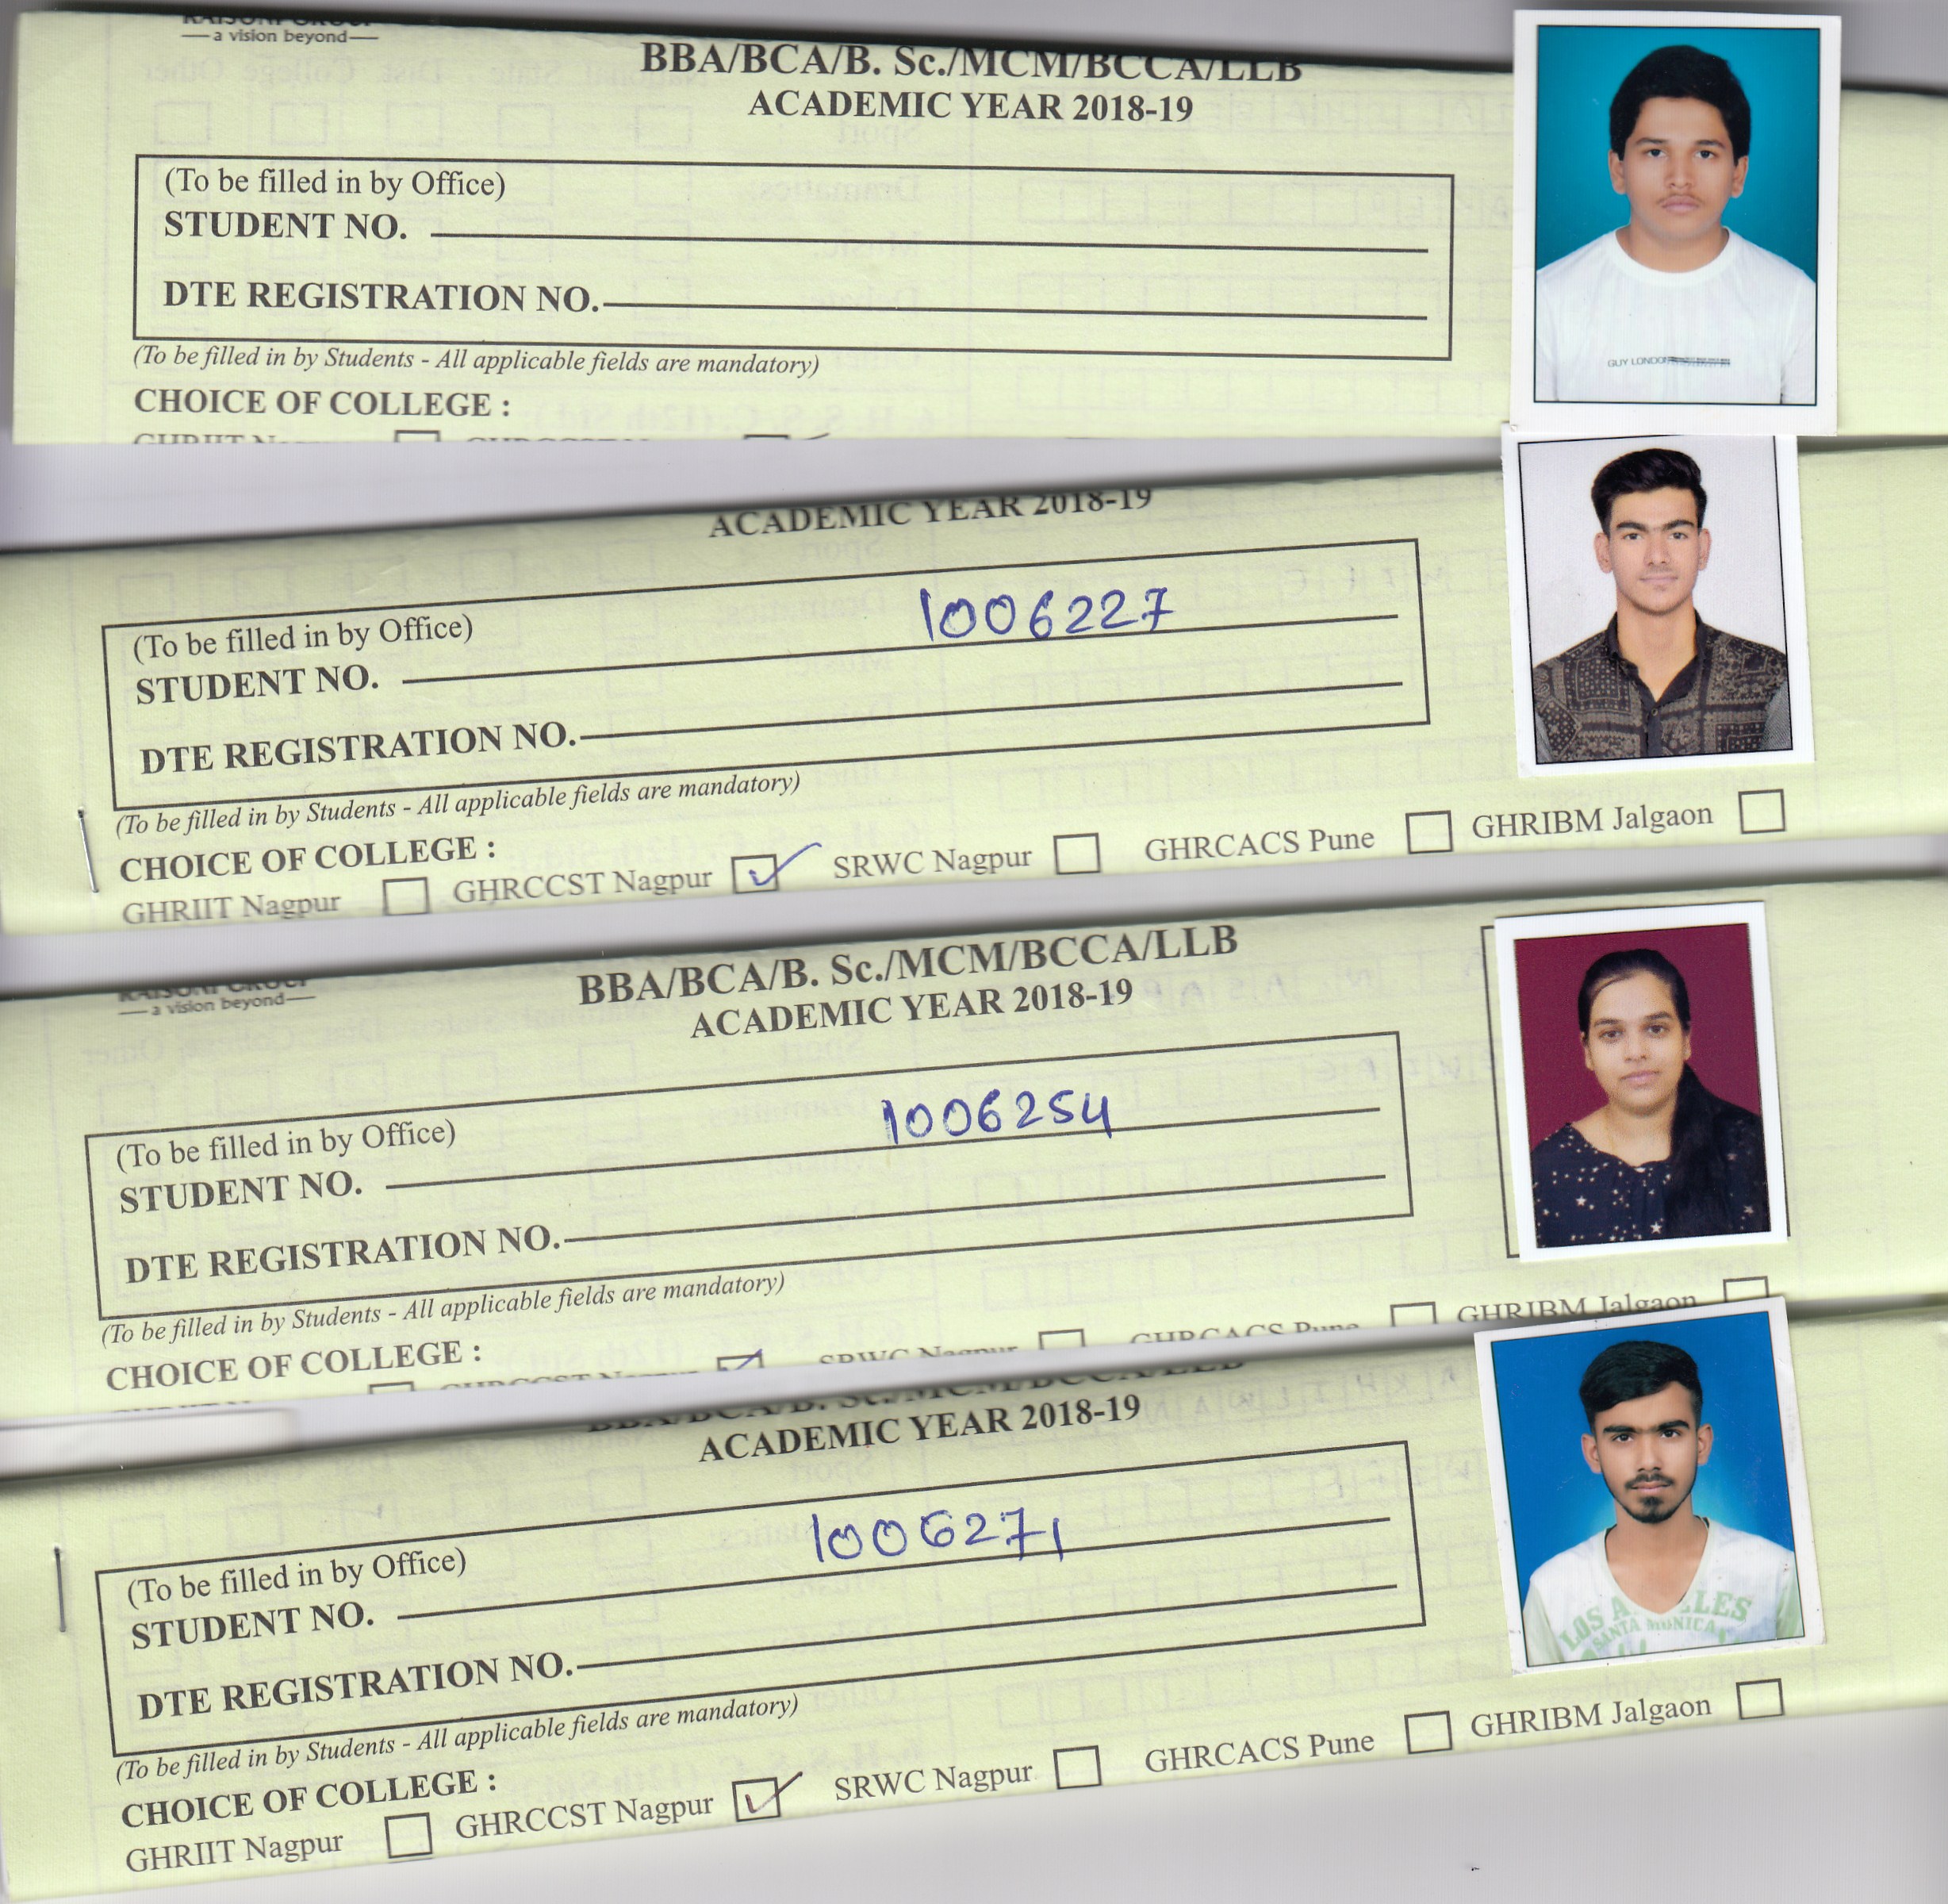 RAISONI GROUP
— a vision beyond —
BBA/BCA/B. Sc./MCM/BCCA/LLB
ACADEMIC YEAR 2018-19
(To be filled in by Office)
STUDENT NO.
DTE REGISTRATION NO.
(To be filled in by Students - All applicable fields are mandatory)
CHOICE OF COLLEGE :
GHRIIT Nagpur
GUY LONDON
ACADEMIC YEAR 2018-19
(To be filled in by Office)
STUDENT NO. 1006227
DTE REGISTRATION NO.
(To be filled in by Students - All applicable fields are mandatory)
CHOICE OF COLLEGE :
GHRIIT Nagpur GHRCCST Nagpur SRWC Nagpur GHRCACS Pune GHRIBM Jalgaon
RAISONI GROUP
— a vision beyond —
BBA/BCA/B. Sc./MCM/BCCA/LLB
ACADEMIC YEAR 2018-19
(To be filled in by Office)
STUDENT NO. 1006254
DTE REGISTRATION NO.
(To be filled in by Students - All applicable fields are mandatory)
CHOICE OF COLLEGE :
GHRCCST Nagpur SRWC Nagpur GHRCACS Pune GHRIBM Jalgaon
BBA/BCA/B. Sc./MCM/BCCA/LLB
ACADEMIC YEAR 2018-19
(To be filled in by Office)
STUDENT NO. 1006271
DTE REGISTRATION NO.
(To be filled in by Students - All applicable fields are mandatory)
CHOICE OF COLLEGE :
GHRIIT Nagpur GHRCCST Nagpur SRWC Nagpur GHRCACS Pune GHRIBM Jalgaon
SANTA MONICA